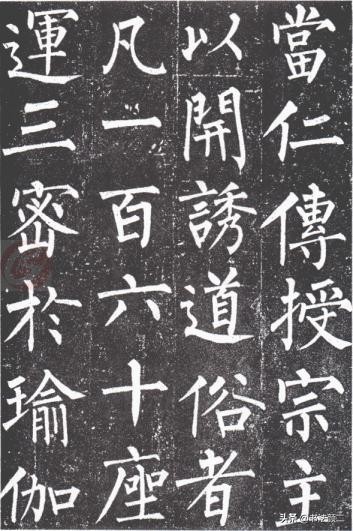 當仁傳授宗主
以開誘道俗者
凡一百六十座
運三密於瑜伽
头条 @书法颜二